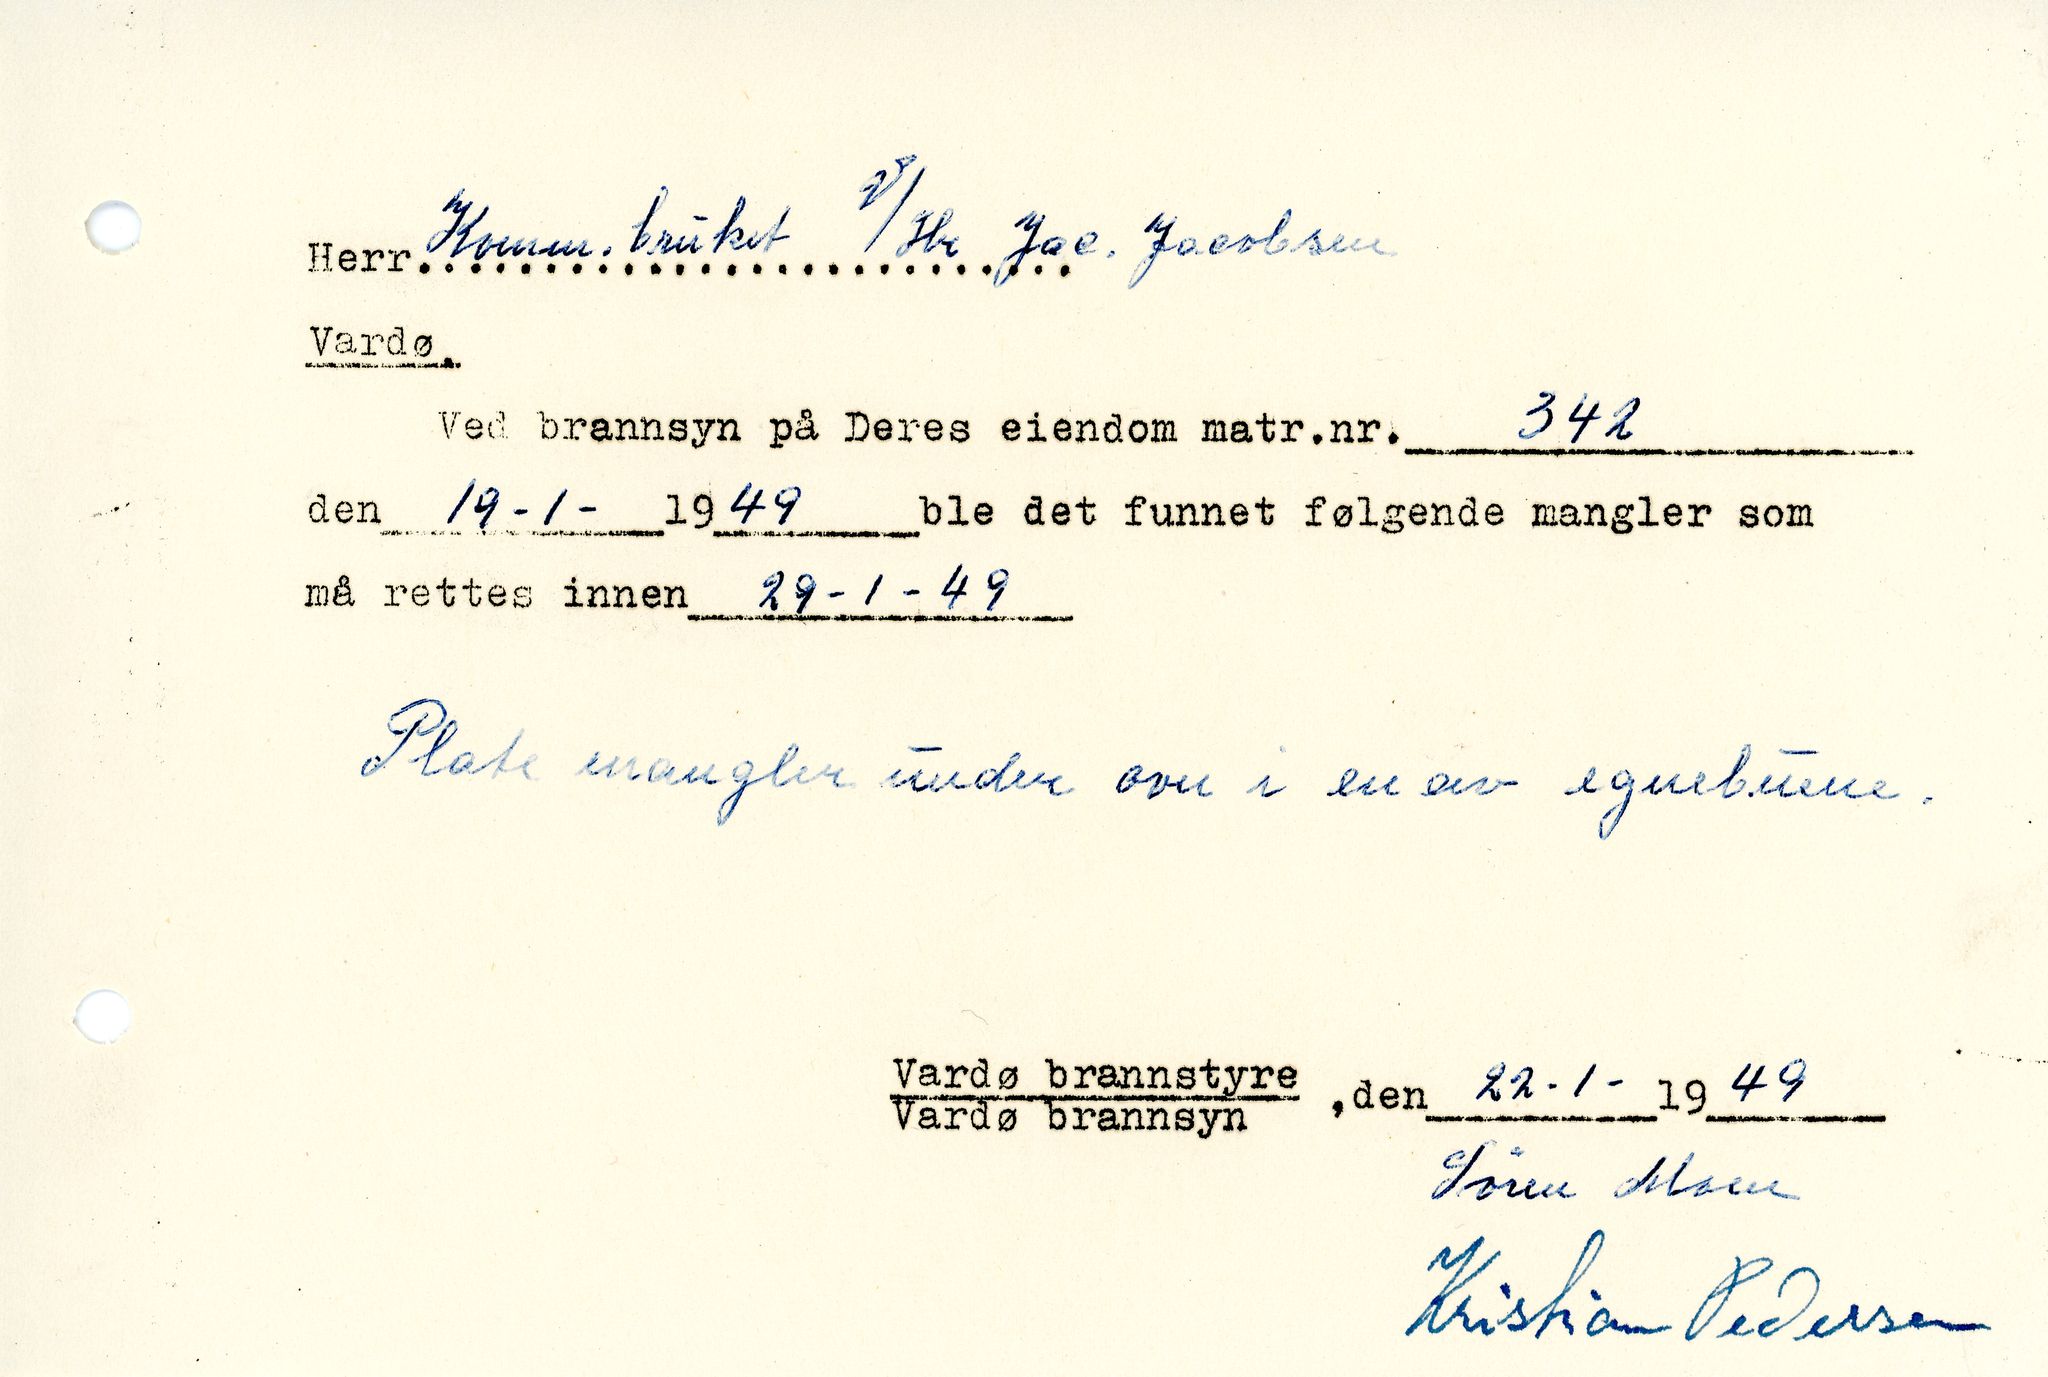 Herr Komm. bruket v/ Hr Jac. Jacobsen
Vardø.
Ved brannsyn på Deres eiendom matr.nr. 342
den 19-1- 1949 ble det funnet følgende mangler som
må rettes innen 29-1-49
Plate mangler under ovn i en av egnebuene.
Vardø brannstyre
Vardø brannsyn ,den 22-1- 1949
Sören Moen
Kristian Pedersen